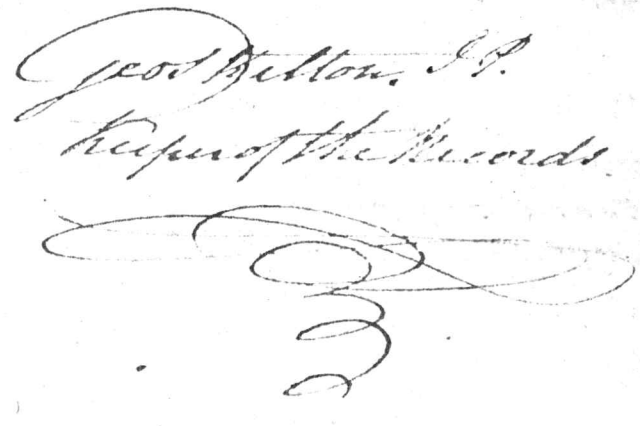 Geo Skelton. J P.
Keeper of the Records.